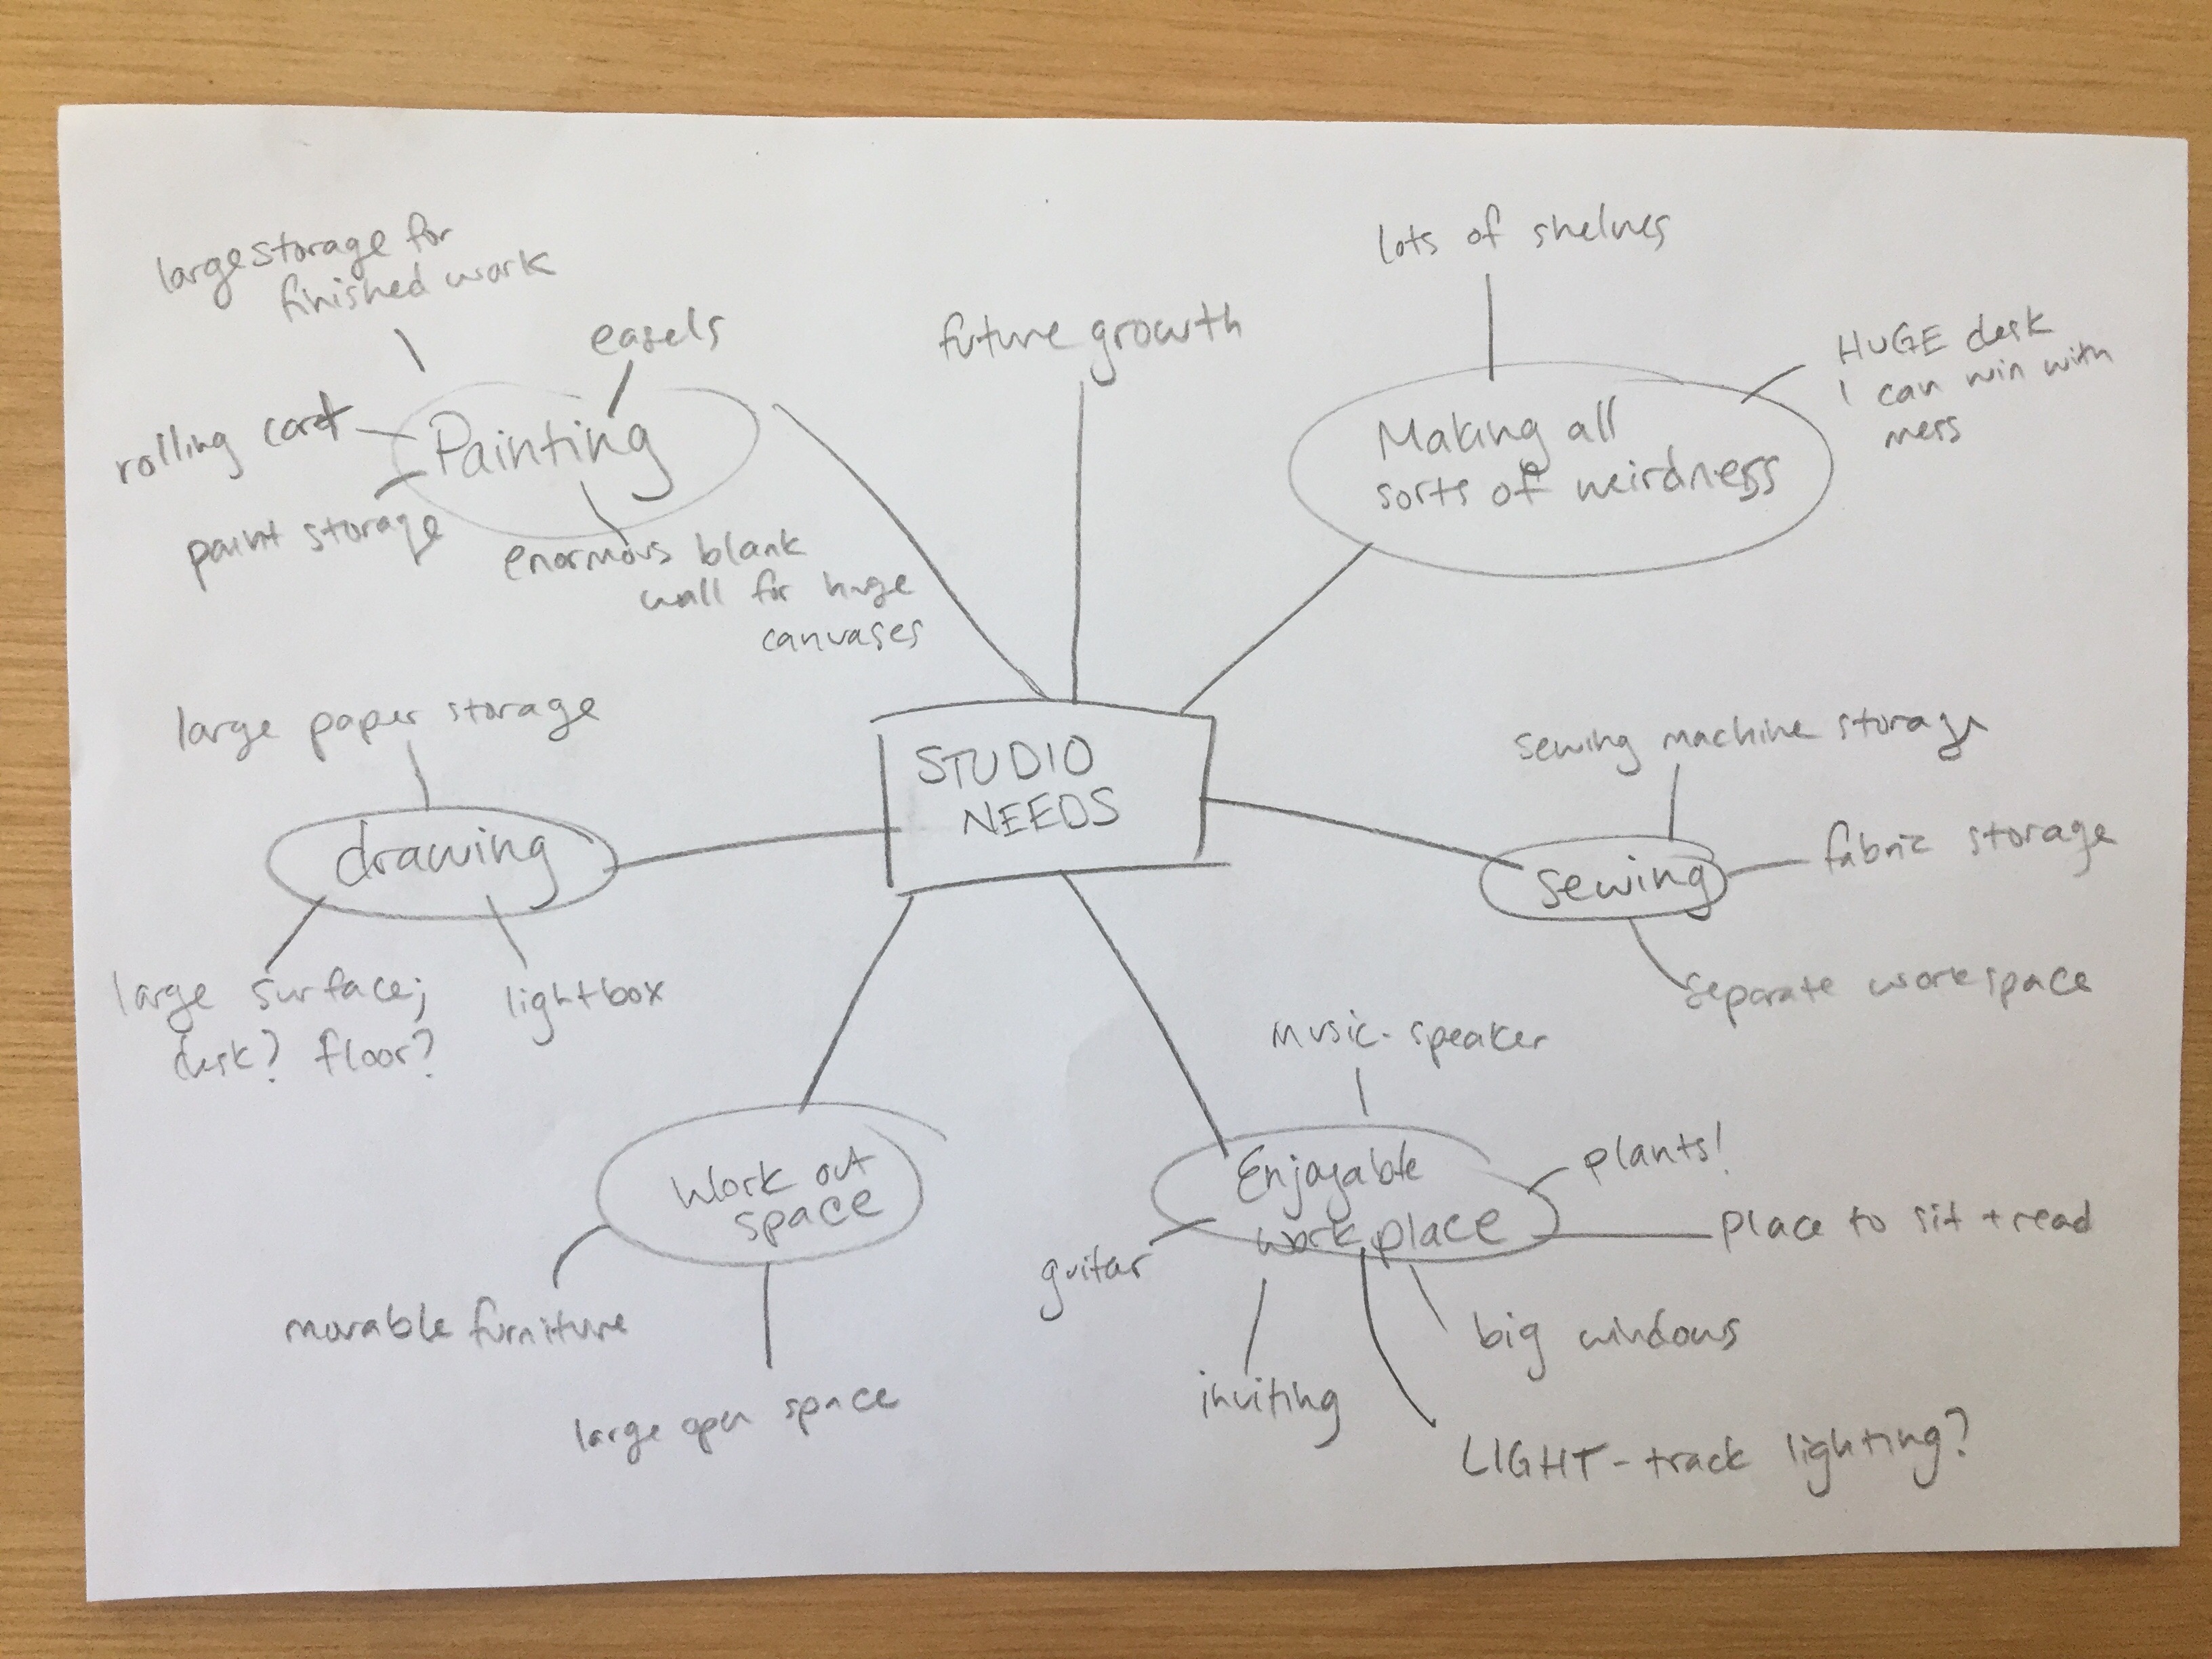 large storage for
finished work
easels
rolling cart
Painting
paint storage
enormous blank
wall for huge
canvases
future growth
lots of shelves
HUGE desk
I can win with
mess
Making all
sorts of weirdness
STUDIO
NEEDS
large paper storage
drawing
large surface;
desk? floor?
lightbox
sewing machine storage
fabric storage
sewing
separate workspace
Work out
space
movable furniture
large open space
music - speaker
Enjoyable
workplace
plants!
place to sit + read
guitar
big windows
inviting
LIGHT - track lighting?